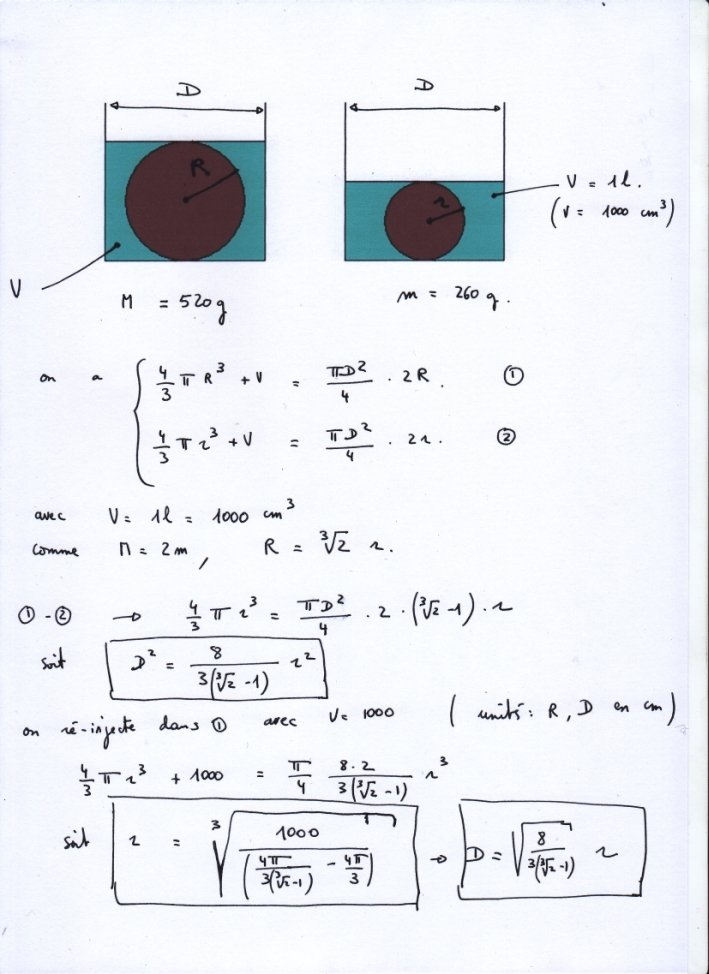 D D
R r V = 1l.
(V = 1000 cm³)
V
M = 520g m = 260g.
on a { 4/3 π R³ + V = πD²/4 · 2R. ①
4/3 π r³ + V = πD²/4 · 2r. ②
avec V = 1l = 1000 cm³
comme M = 2m, R = ³√2 r.
① - ② → 4/3 π r³ = πD²/4 · 2 · (³√2 - 1) · r
soit D² = 8/3(³√2 - 1) r²
on ré-injecte dans ① avec V = 1000 (unités : R, D en cm)
4/3 π r³ + 1000 = π/4 8·2/3(³√2 - 1) r³
soit r = ³√(1000/(4π/3(³√2 - 1) - 4π/3)) → D = √(8/3(³√2 - 1)) r